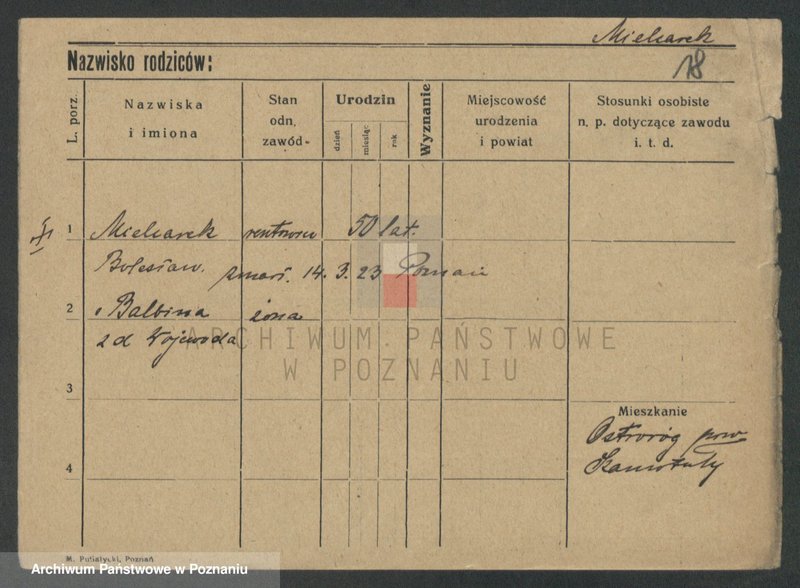 Mielcarek
Nazwisko rodziców:
18
L. porz.
Nazwiska
i imiona
Stan
odn.
zawód-
Urodzin
dzień
miesiąc
rok
Wyznanie
Miejscowość
urodzenia
i powiat
Stosunki osobiste
n. p. dotyczące zawodu
i. t. d.
1 Mielcarek 50 lat.
Bolesław. zmarł. 14. 3. 23 Poznań
2 Balbina żona
z d Wojewoda
ARCHIWUM PAŃSTWOWE
W POZNANIU
3
Mieszkanie
Ostroróg pow
4 Szamotuły
M. Putiatycki, Poznań
Archiwum Państwowe w Poznaniu